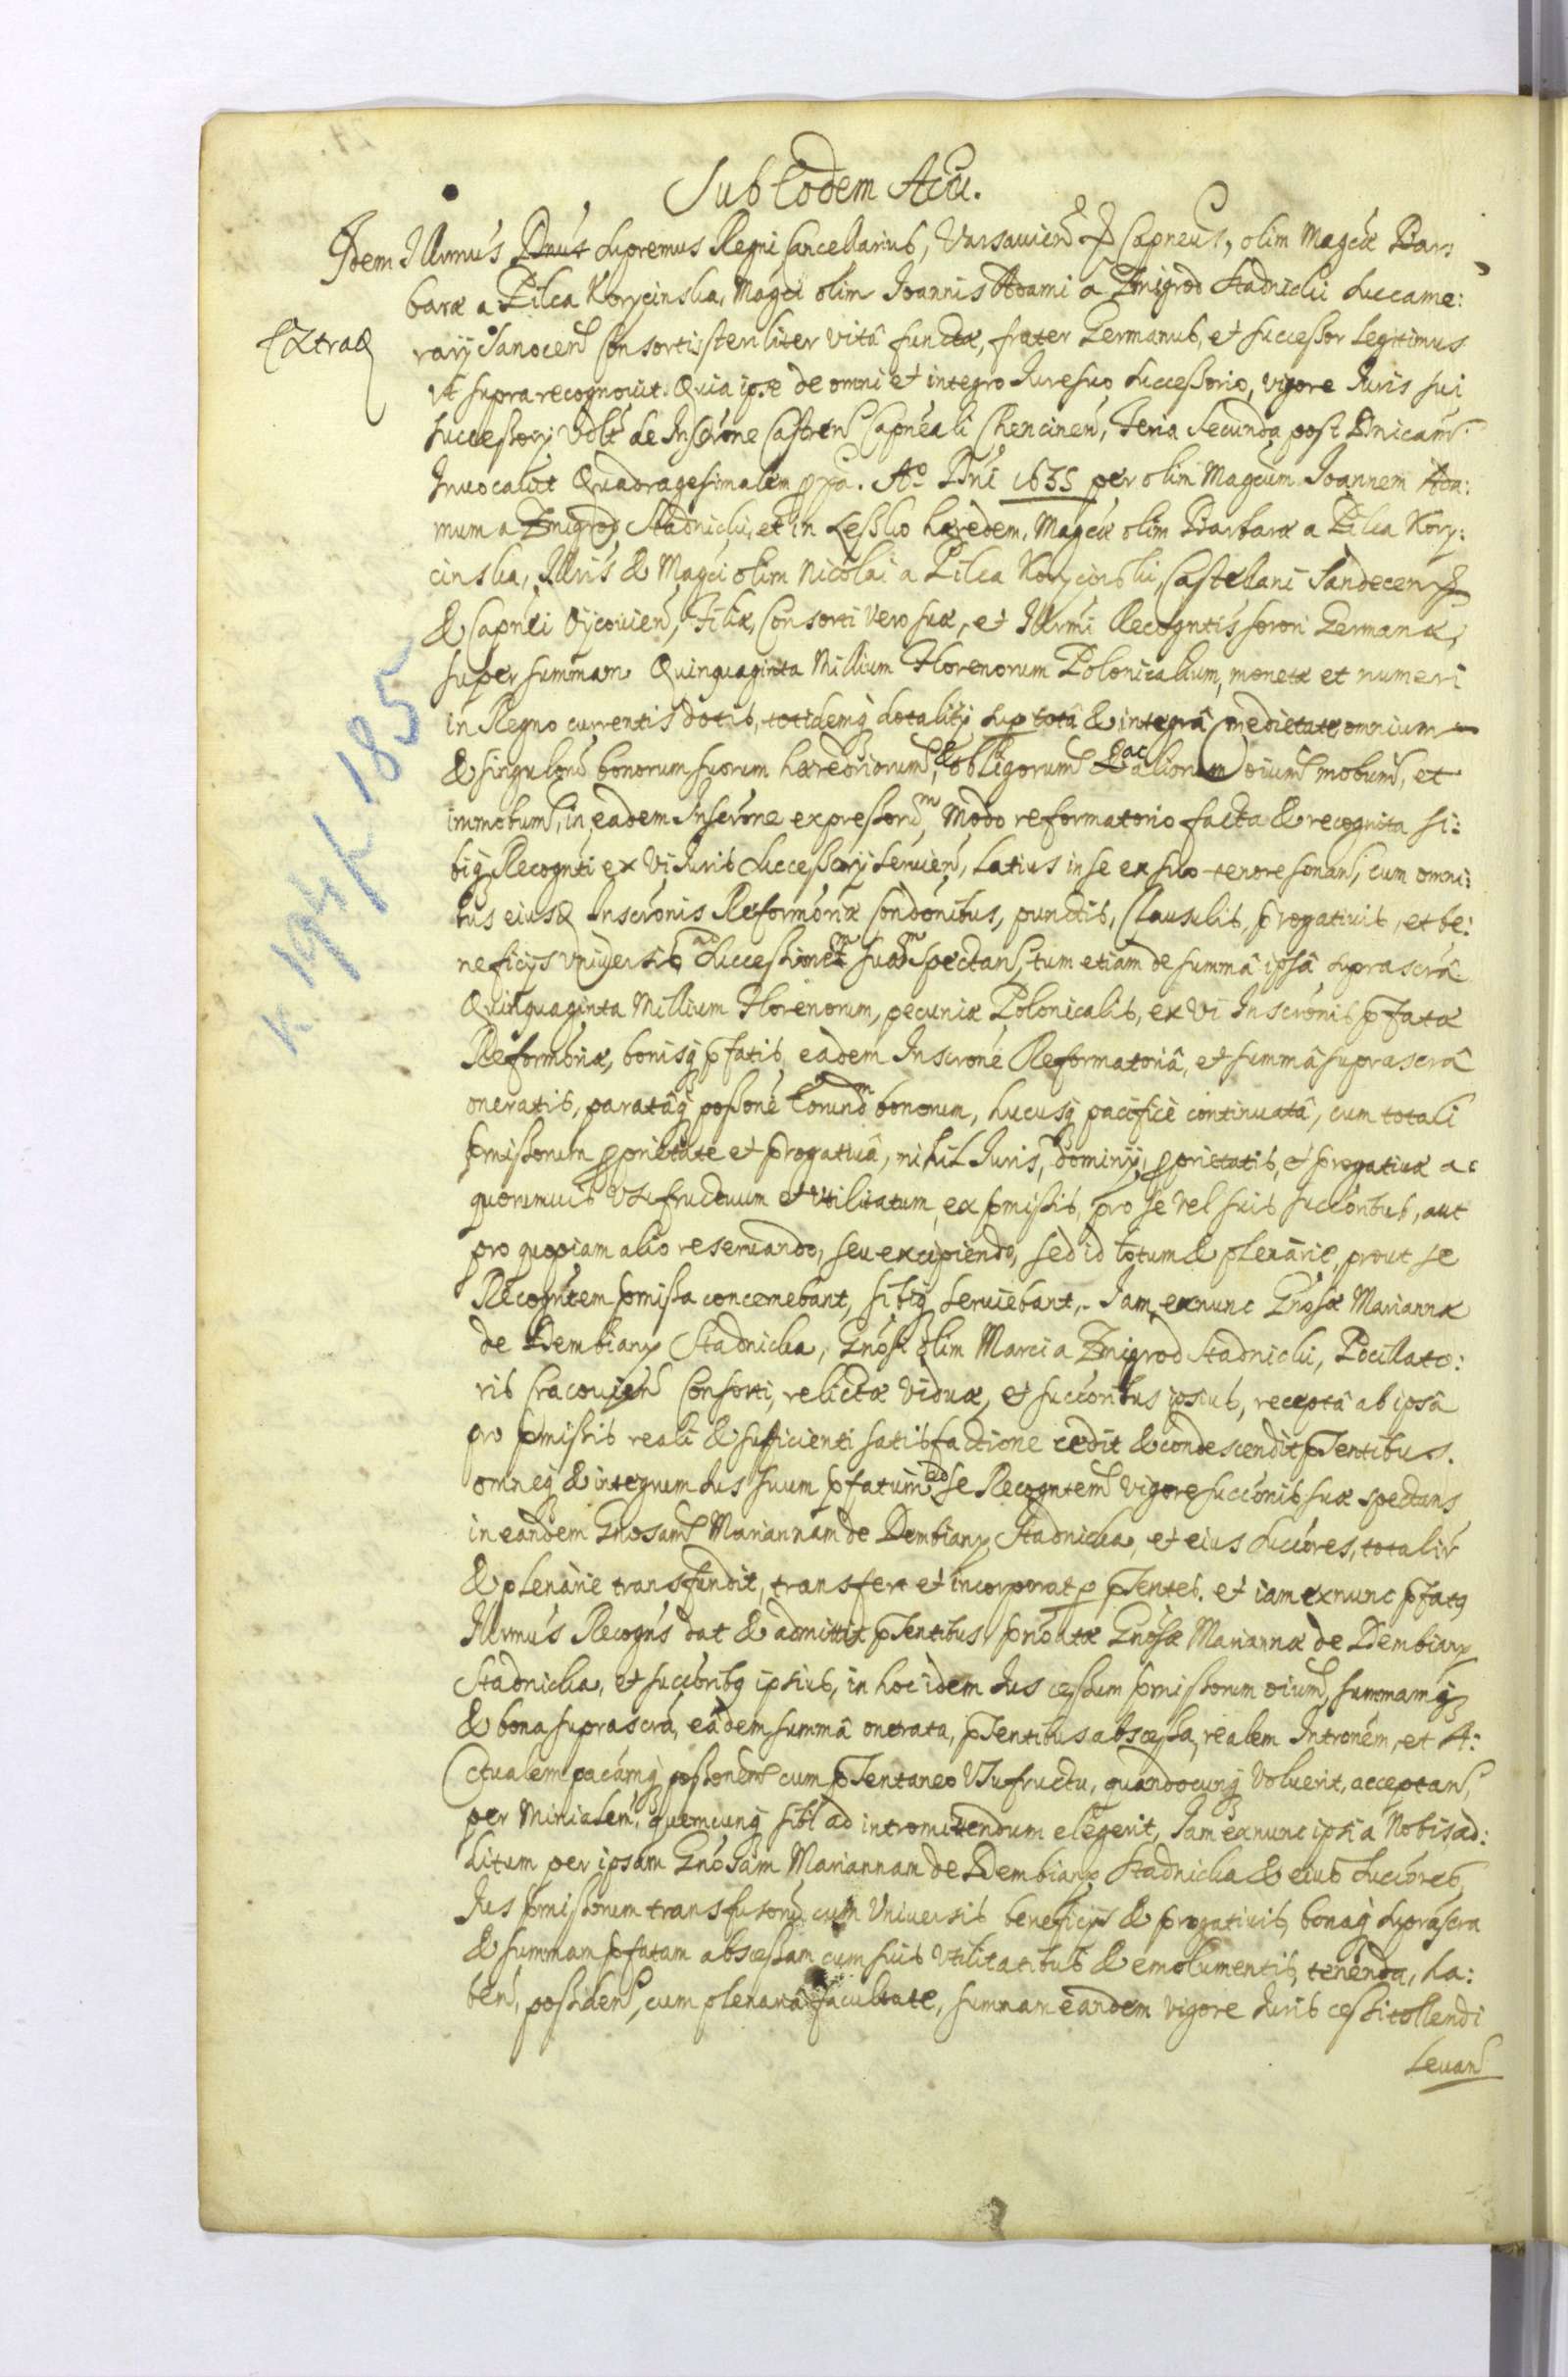 Sub Eodem Actu.
Idem Illrmus Dnus Supremus Regni Cancellarius, Varsavien &c Capneus, olim Magcæ Bar:
baræ a Pilca Korycinska, Magci olim Joannis Adami a Zmigrod Stadnicki Succame:
Extrad
rarij Sanocen Consortis steriliter vitâ functæ, frater Germanus, et successor Legitimus
Ut supra recognovit. Quia ipse de omni et integro Jure suo Successorio, vigore Juris sui
Successorij Vdlt de Inscrone Castren Capneali Chencinen, Feria Secunda post Dnicam
Invocavit Quadragesimalem pxa. Ao Dni 1635 per olim Magcum Joannem Ada:
mum a Zmigrod Stadnicki, et in Lessko hæredem, Magcæ olim Barbaræ a Pilca Kory:
cinska, Illris & Magci olim Nicolai a Pilca Korycinski, Castellani Sandecen &
& Capnei Oycovien, Filiæ, Consorti vero suæ, et Illrmi Recogntis sorori Germanæ,
super summam Quinquaginta Millium Florenorum Polonicalium, monetæ et numeri
in Regno currentis dotis, totidemq dotalitij sup totâ & integrâ medietate omnium
& singulorũ bonorum suorum hæreditorum, & obligorum & ac aliorum oium mobum, et
immobum, in eadem Inscrone expressorum, Modo reformatorio facta & recognita si:
biq Recognti ex Vi Juris Successorij servien, Latius in se ex suo tenore sonan, cum omni:
bus eiusd Inscronis Reformoriæ Condonibus, punctis, Clausulis, progativis, et be:
neficijs Universis ad Successionem suam spectan, tum etiam de summâ ipsâ suprascrâ
Quinquaginta Millium Florenorum, pecuniæ Polonicalis, ex Vi Inscronis pfatæ
Reformoriæ, bonisq pfatis, eadem Inscrone Reformatoriâ, et summâ suprascrâ
oneratis, paratâq possone eorundm bonorum, hucusq pacifice continuatâ, cum totali
pmissorum pprietate et progativâ, nihil Juris, dominij, pprietatis, et progativæ ac
quorumvis Usufructuum et Utilitatum, ex pmissis, pro se vel suis succoribus, aut
pro quopiam alio reservando, seu excipiendo, sed id totum & plenarie, prout se
Recogntem pmissa concernebant, sibiq serviebant, Jam exnunc Gnosæ Mariannæ
de Dembiany Stadnicka, Gnosi olim Marci a Zmigrod Stadnicki, Pocillato:
ris Cracovien Consorti, relictæ Viduæ, et succoribus ipsius, receptâ ab ipsâ
pro pmissis reali & sufficienti satisfactione cedit & condescendit pntibus.
omneq & integrum Jus suum pfatum ad se Recogntem vigore succonis suæ spectans
in eandem Gnosam Mariannam de Dembiany Stadnicka, et eius succores, totalir
& plenarie transfundit, transfert et incorporat p pntes. et iam exnunc pfatq
Illrmus Recogns dat & admittit pntibus pnoatæ Gnosæ Mariannæ de Dembiany
Stadnicka, et succoribq ipsius, in hoc idem Jus cessum pmissorum oium, summamq
& bona suprascra, eâdem summâ onerata, pntibus abscessa, realem Intronem, et A:
ctualem pacamq possonem cum pntaneo Usufructu, quandocunq voluerit, acceptan,
per Minialem, quemcunq sibi ad intromittendum elegerit, Jam exnunc ipsi a Nobis ad:
ditum per ipsam Gnosam Mariannam de Dembiany Stadnicka & eius Succores,
Jus pmissorum transfusorũ cum Universis beneficijs & progativis, bonaq suprascra
& summam pfatam abscessam cum suis Utilitatibus & emolumentis, tenenda, ha:
ben, possiden, cum plenariâ facultate, summam eandem vigore Juris cessi tollendi
Levan
K 194 k 185